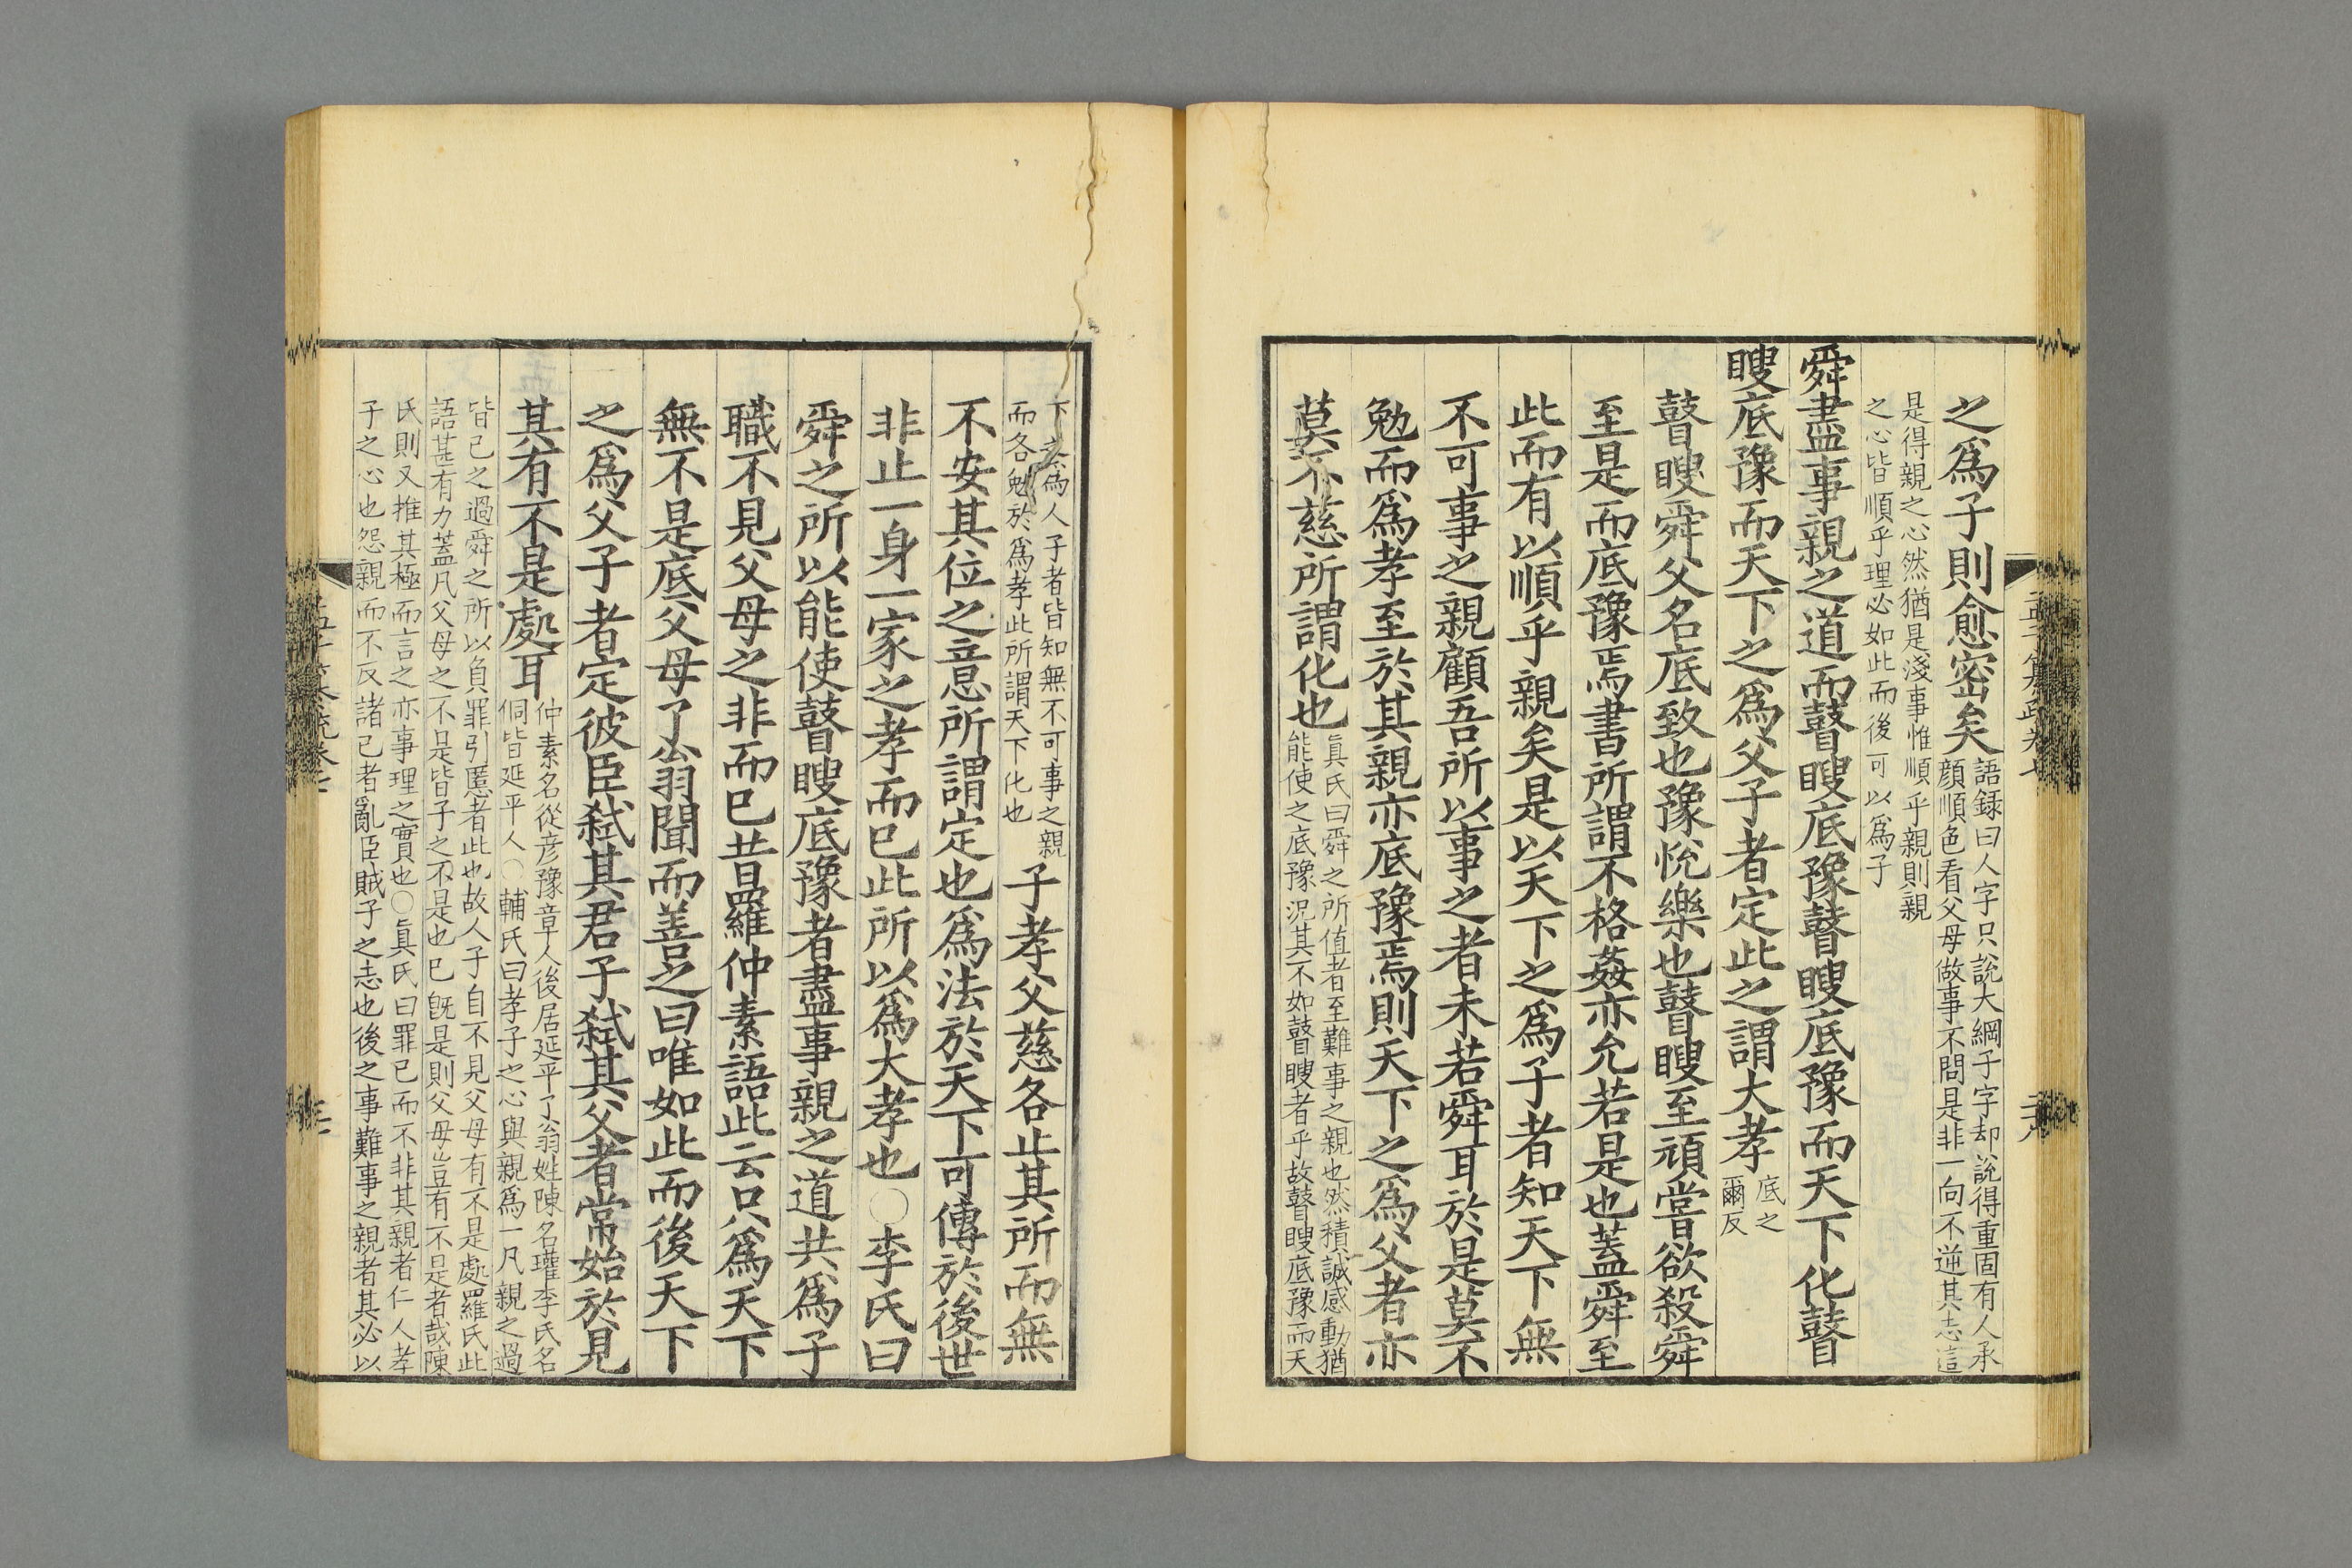 之爲子則愈密矣語録曰人字只說大綱子字却說得重固有人承
顔順色看父母做事不問是非一向不逆其志這
是得親之心然猶是淺事惟順乎親則親
之心皆順乎理必如此而後可以爲子
舜盡事親之道而瞽瞍底豫瞽瞍底豫而天下化瞽
瞍底豫而天下之爲父子者定此之謂大孝底之
爾反
瞽瞍舜父名底致也豫悅樂也瞽瞍至頑嘗欲殺舜
至是而底豫焉書所謂不格姦亦允若是也蓋舜至
此而有以順乎親矣是以天下之爲子者知天下無
不可事之親顧吾所以事之者未若舜耳於是莫不
勉而爲孝至於其親亦底豫焉則天下之爲父者亦
莫不慈所謂化也眞氏曰舜之所值者至難事之親也然積誠感動猶
能使之底豫況其不如瞽瞍者乎故瞽瞍底豫而天
下之爲人子者皆知無不可事之親
而各勉於爲孝此所謂天下化也
子孝父慈各止其所而無
不安其位之意所謂定也爲法於天下可傳於後世
非止一身一家之孝而已此所以爲大孝也○李氏曰
舜之所以能使瞽瞍底豫者盡事親之道共爲子
職不見父母之非而已昔羅仲素語此云只爲天下
無不是底父母了翁聞而善之曰唯如此而後天下
之爲父子者定彼臣弑其君子弑其父者常始於見
其有不是處耳仲素名從彦豫章人後居延平了翁姓陳名瓘李氏名
侗皆延平人○輔氏曰孝子之心與親爲一凡親之過
皆己之過舜之所以負罪引慝者此也故人子自不見父母有不是處羅氏此
語甚有力蓋凡父母之不是皆子之不是也已旣是則父母豈有不是者哉陳
氏則又推其極而言之亦事理之實也○眞氏曰罪己而不非其親者仁人孝
子之心也怨親而不反諸己者亂臣賊子之志也後之事難事之親者其必以